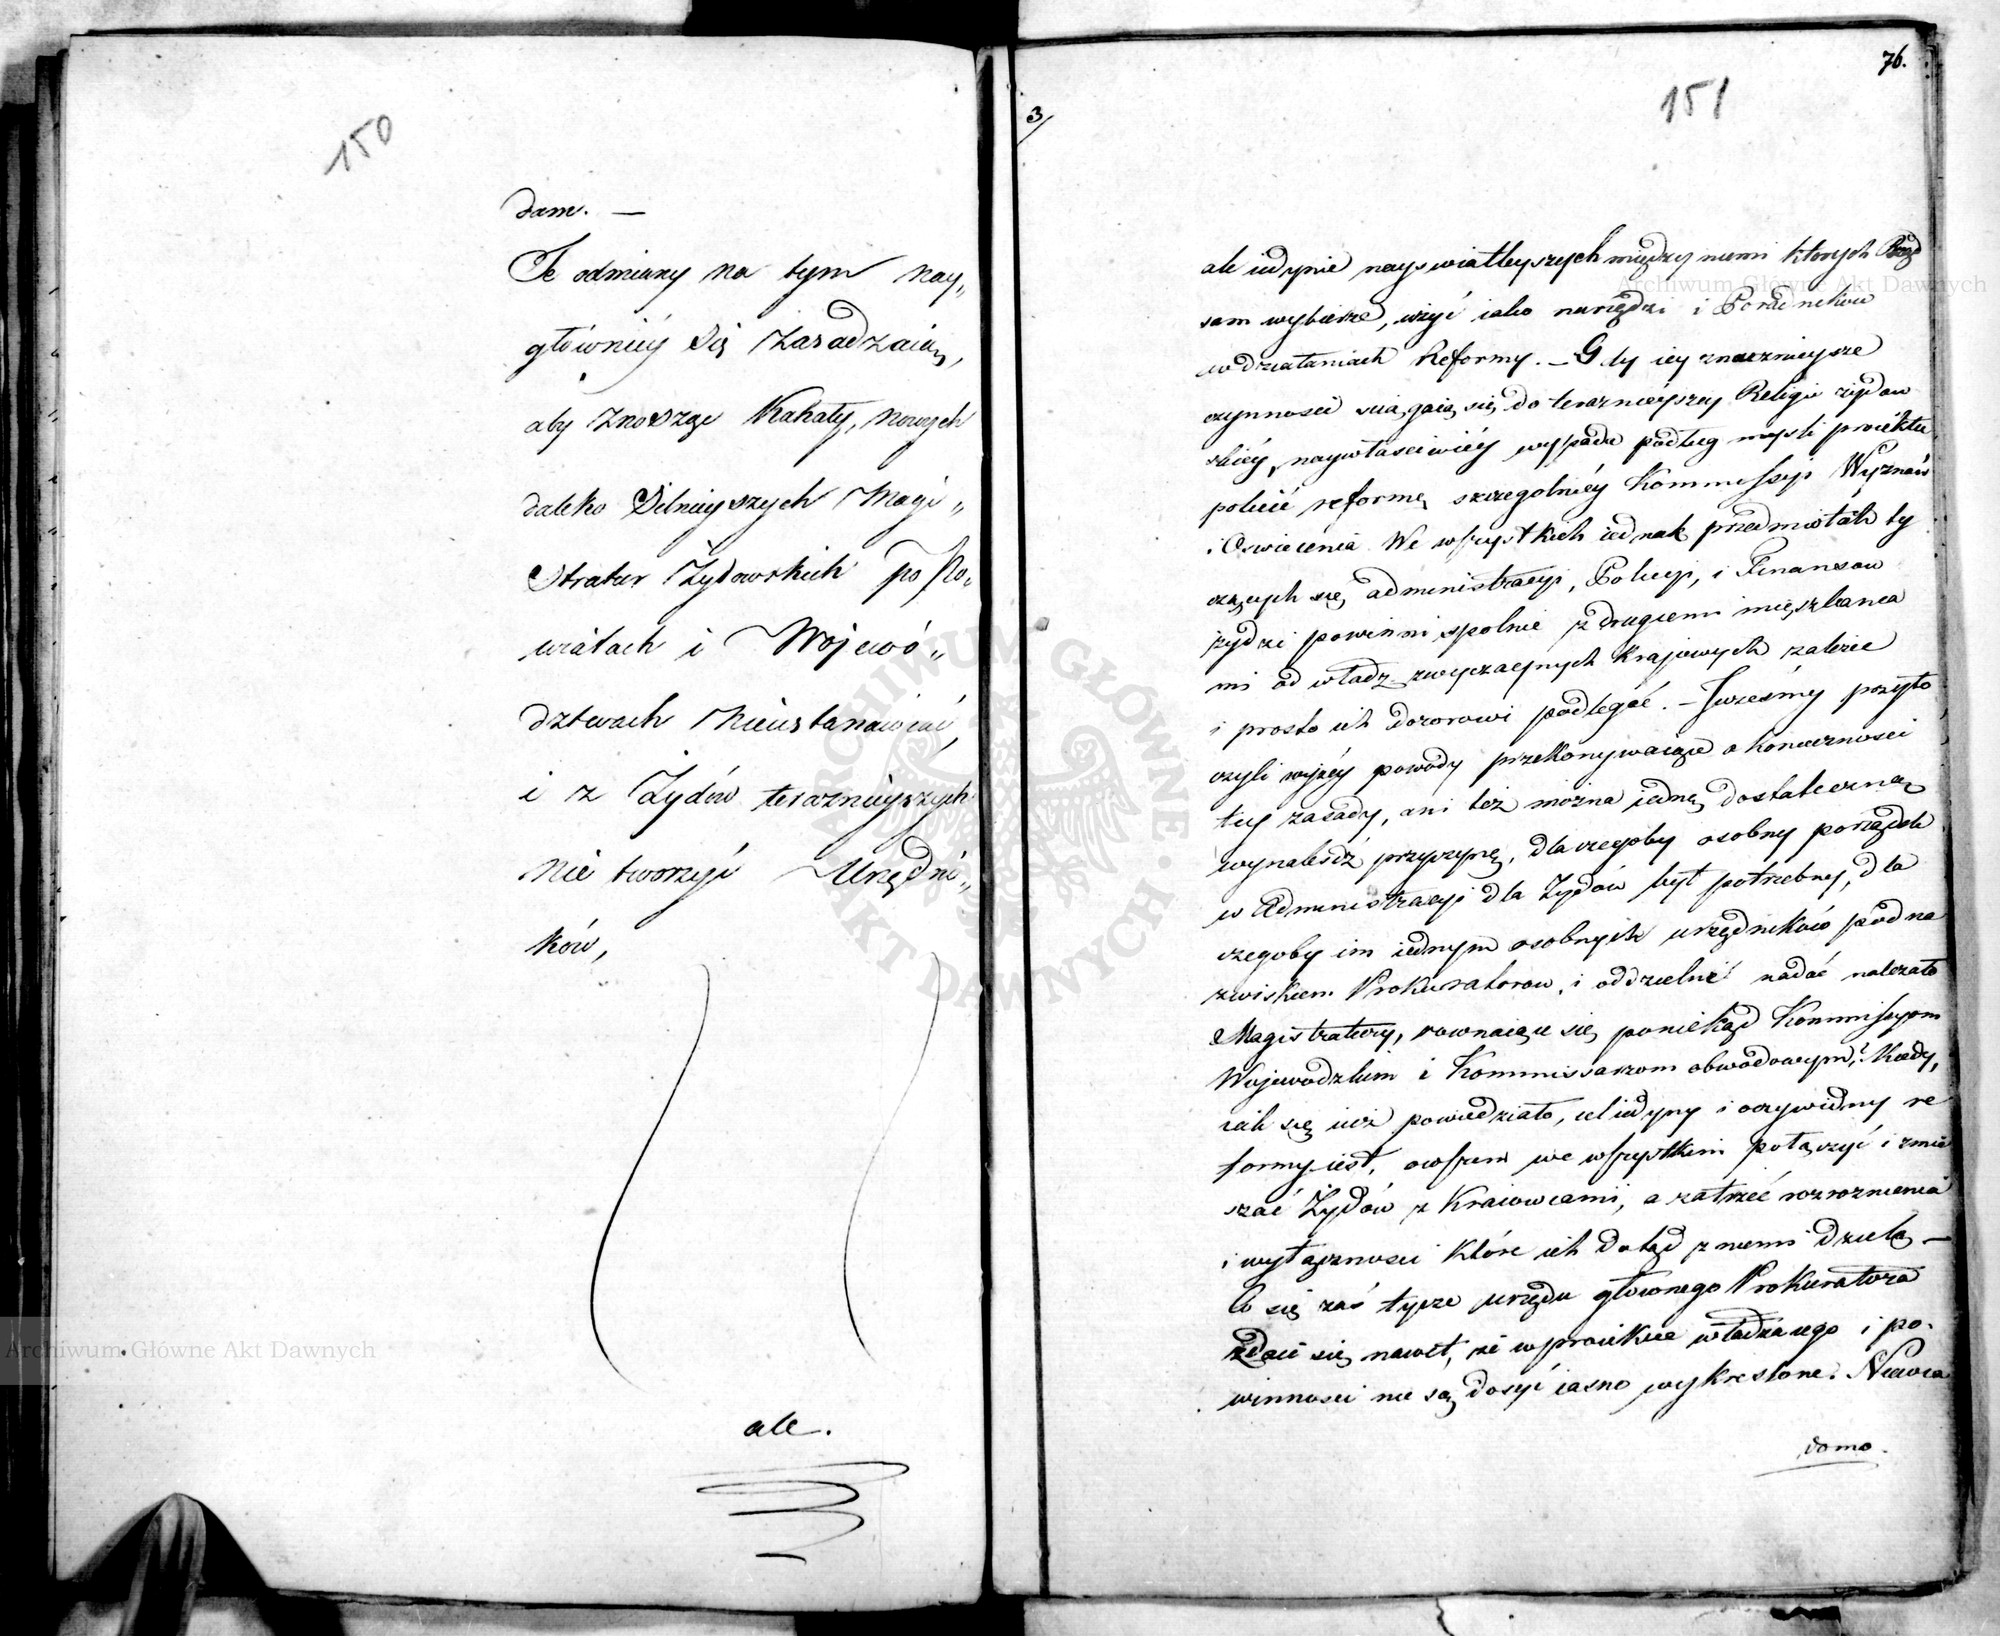 150
dam. —
Te odmiany na tym nay„
główniéy się zasadzaią,
aby znosząc Kahały, nowych
daleko silnieyszych Magi„
stratur Żydowskich po Po„
wiatach i Wojewó„
dztwach nieustanawiać,
i z Żydów teraznieyszych
nie tworzyć Urzędni„
ków,
ale.
76.
151
3/
ale iedynie nayswiatleyszych między niemi ktorych Rząd
sam wybierze, użyć iako narzędzi i Poradnikow
w działaniach Reformy. — Gdy iey znacznieysze
czynnosci sciągaią się do teraznieyszey Religii żydow
skiéy, naywłasciwiéy wypada podług mysli proiektu
polecić reformę szczegolniéy Kommissyi Wyznań
i Oswiecenia. We wszystkich iednak przedmiotach ty
czących się administracyi, Policyi, i Finansow
żydzi powinni spolnie z drugiemi mieszkanca
mi od władz zwyczaynych krajowych zależeć
i prosto ich dozorowi podlegać. — Jużeśmy przyto
czyli wyżéy powody przekonywaiące o konieczności
téy zasady, ani też można iedną dostateczną
wynaleśdź przyczynę, dla czegoby osobny porządek
w Administracyi dla Żydów był potrzebny, dla
czegoby im iednym osobnych urzędników pod na
zwiskiem Prokuratorow, i oddzielne nadać należało
Magistratury, rownaiące się poniekąd Kommissyom
Wojewodzkim i Kommissarzom obwodowym? Kiedy,
iak się iuż powiedziało, cel iedyny i oczywisty re
formy iest, owszem we wszystkim połączyć i zmie
szać Żydów z Kraiowcami, a zatrzeć rozroznienia
i wyłącznosci które ich dotąd z niemi dzielą —
Co się zaś tycze urzędu głównego Prokuratora
zdaie się nawet, że w proiekcie władza iego i po„
winnosci nie są dosyć iasno wykreslone. Niewia
domo.
Archiwum Główne Akt Dawnych
Archiwum Główne Akt Dawnych
ARCHIWUM GŁÓWNE • AKT DAWNYCH •